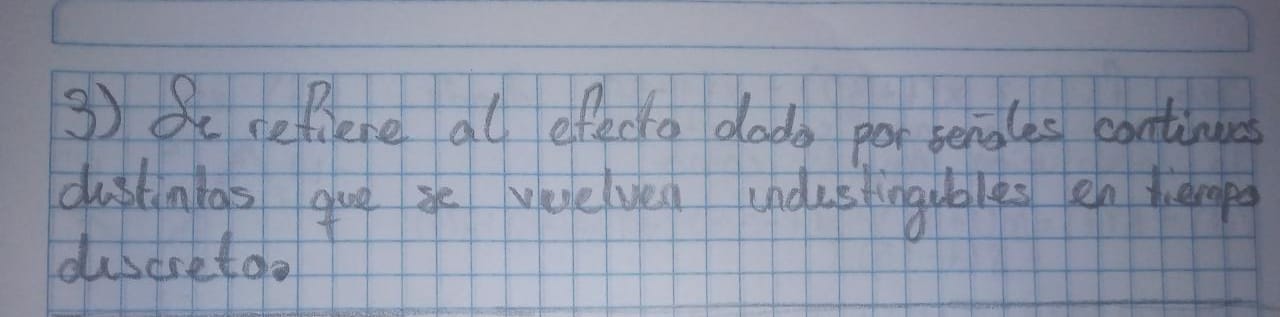 3) Se refiere al efecto dado por señales continuas
distintas que se vuelven indistinguibles en tiempo
discreto.